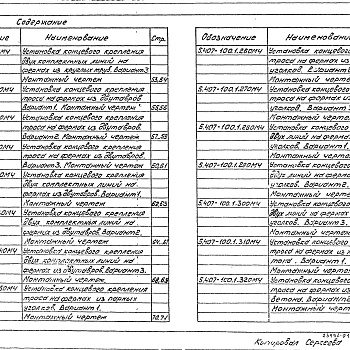 Содержание
Наименование
Стр.
Установка концевого крепления
двух комплектных линий на
фермах из круглых труб. Вариант 3
Монтажный чертеж 53,54
Установка концевого крепления
троса на фермах из двутавров.
Вариант 1. Монтажный чертеж 55,56
Установка концевого крепления
троса на фермах из двутавров.
Вариант 2. Монтажный чертеж
Установка концевого крепления
троса на фермах из двутавров.
Вариант 3. Монтажный чертеж
Установка концевого крепления
двух комплектных линий на
фермах из двутавров. Вариант 1.
Монтажный чертеж
Установка концевого крепления
двух комплектных линий на
фермах из двутавров. Вариант 2.
Монтажный чертеж
Установка концевого крепления
двух комплектных линий на
фермах из двутавров. Вариант 3.
Монтажный чертеж.
Установка концевого крепления
троса на фермах из парных
уголков. Вариант 1.
Монтажный чертеж 70,71
Обозначение
Наименован
5.407-100.1.260МЧ Установка концевого
троса на фермах
уголков. Вариант
Монтажный черте
5.407-100.1.270МЧ Установка концево
троса на фермах
уголков. Вариант
Монтажный черте
5.407-100.1.280МЧ Установка концев
двух линий на фер
уголков. Вариант 1.
Монтажный черте
5.407-100.1.290МЧ Установка концево
двух линий на фер
уголков. Вариант 2.
Монтажный черте
5.407-100.1.300МЧ Установка концево
двух линий на фер
уголков. Вариант 3.
Монтажный черт
5.407-100.1.310МЧ Установка концево
троса на фермах
Вариант 1.
Монтажный чертеж
5.407-100.1.320МЧ Установка концево
троса на фермах из
бетона. Вариант 2
Монтажный чертеж
Копировал Сергеева